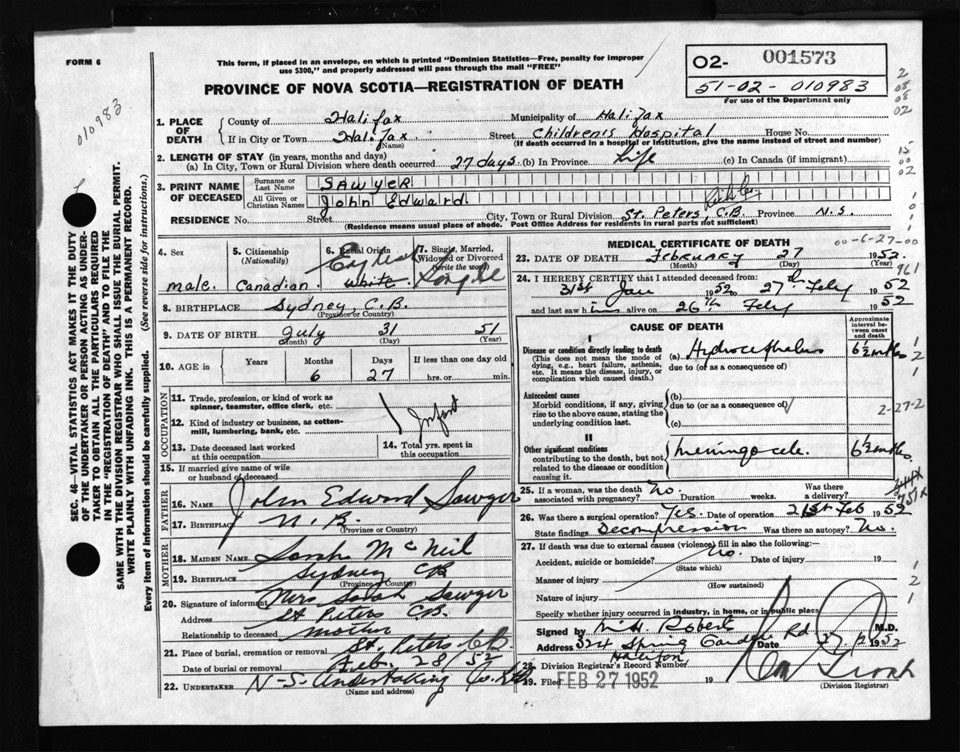 FORM 6
This form, if placed in an envelope, on which is printed "Dominion Statistics—Free, penalty for improper
use $300," and properly addressed will pass through the mail "FREE"
O2- 001573
51-02- 010983
For use of the Department only
010983
PROVINCE OF NOVA SCOTIA—REGISTRATION OF DEATH
1. PLACE OF DEATH
County of Halifax Municipality of Halifax
If in City or Town Halifax Street Children's Hospital House No.
(Name) (If death occurred in a hospital or institution, give the name instead of street and number)
2. LENGTH OF STAY (in years, months and days)
(a) In City, Town or Rural Division where death occurred 27 days (b) In Province Life (c) In Canada (if immigrant)
3. PRINT NAME OF DECEASED
Surname or Last Name SAWYER
All Given or Christian Names John Edward
RESIDENCE No. Street City, Town or Rural Division St. Peters, C.B. Province N.S.
(Residence means usual place of abode. Post Office Address for residents in rural parts not sufficient)
SEC. 46—VITAL STATISTICS ACT MAKES IT THE DUTY
OF THE UNDERTAKER OR PERSON ACTING AS UNDER-
TAKER TO OBTAIN ALL THE PARTICULARS REQUIRED
IN THE "REGISTRATION OF DEATH" AND TO FILE THE
SAME WITH THE DIVISION REGISTRAR WHO SHALL ISSUE THE BURIAL PERMIT.
WRITE PLAINLY WITH UNFADING INK. THIS IS A PERMANENT RECORD.
Every item of Information should be carefully supplied. (See reverse side for instructions.)
4. Sex male.
5. Citizenship (Nationality) Canadian.
6. Racial Origin English white
7. Single, Married, Widowed or Divorced (write the word) Single
8. BIRTHPLACE Sydney C.B.
(Province or Country)
9. DATE OF BIRTH July 31 51
(Month) (Day) (Year)
10. AGE in Years Months Days If less than one day old
6 27 hrs. or min.
OCCUPATION
11. Trade, profession, or kind of work as
spinner, teamster, office clerk, etc.
12. Kind of industry or business, as cotton-
mill, lumbering, bank, etc.
Infant
13. Date deceased last worked
at this occupation
14. Total yrs. spent
in this occupation
15. If married give name of wife
or husband of deceased
FATHER
16. NAME John Edward Sawyer
17. BIRTHPLACE N.B.
(Province or Country)
MOTHER
18. MAIDEN NAME Sarah McNeil
19. BIRTHPLACE Sydney CB
(Province or Country)
20. Signature of informant Mrs Sarah Sawyer
Address St Peters CB.
Relationship to deceased mother
21. Place of burial, cremation or removal St. Peters CB
Date of burial or removal Feb. 28/52
22. UNDERTAKER N-S. Undertaking Co. Ltd
(Name and address)
MEDICAL CERTIFICATE OF DEATH
00-6-27-00
23. DATE OF DEATH February 27 1952.
(Month) (Day) (Year)
961
24. I HEREBY CERTIFY that I attended deceased from:
31st Jan 1952 to 27th Feby 1952
and last saw him alive on 26th Feby 1952
CAUSE OF DEATH
Approximate interval between onset and death
I
Disease or condition directly leading to death
(This does not mean the mode of dying, e.g., heart failure, asthenia, etc. It means the disease, injury, or complication which caused death.)
(a) Hydrocephalus 6½ mths
due to (or as a consequence of)
Antecedent causes
Morbid conditions, if any, giving rise to the above cause, stating the underlying condition last.
(b)
due to (or as a consequence of)
(c)
2-27-2
II
Other significant conditions
contributing to the death, but not related to the disease or condition causing it.
meningocele. 6½ mths
25. If a woman, was the death associated with pregnancy? No. Duration weeks. Was there a delivery?
751X
26. Was there a surgical operation? Yes. Date of operation 21st Feb 1952
State findings Decompression Was there an autopsy? No.
27. If death was due to external causes (violence) fill in also the following:
Accident, suicide or homicide? No. Date of injury 19
(State which)
Manner of injury
(How sustained)
Nature of injury
Specify whether injury occurred in industry, in home, or in public place
Signed by M.H. Robert M.D.
Address 324 Spring Garden Rd Date 27/2 1952
Halifax
28. Division Registrar's Record Number
29. Filed FEB 27 1952 19
(Division Registrar)